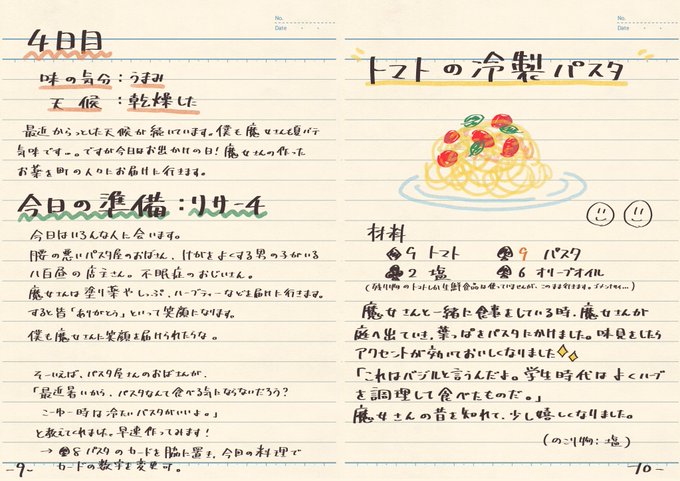 No.
Date
4日目
味の気分：うまみ
天候：乾燥した
最近からっとした天候が続いています。僕も魔女さんも夏バテ
気味です…。ですが今日はお出かけの日！魔女さんの作った
お薬を町の人々にお届けに行きます。
今日の準備：リサーチ
今日はいろんな人に会います。
腰の悪いパスタ屋のおばさん、けがをよくする男の子がいる
八百屋の店主さん。不眠症のおじいさん。
魔女さんは塗り薬やしっぷ、ハーブティーなどを届けに行きます。
すると皆「ありがとう」といって笑顔になります。
僕も魔女さんに笑顔を届けられたらな。
そういえば、パスタ屋さんのおばさんが、
「最近暑いから、パスタなんて食べる気にならないだろう？
こーゆー時は冷たいパスタがいいよ。」
と教えてくれました。早速作ってみます！
→ 8 パスタのカードを脇に置き、今回の料理で
カードの数字を変更可。
-9-
No.
Date
トマトの冷製パスタ
材料
9 トマト
9 パスタ
2 塩
6 オリーブオイル
(残り物のトマトしか生鮮食品は使っていませんが、このまま行きます。ゴメンナサイ…)
魔女さんと一緒に食事をしている時、魔女さんが
庭へ出ていき、葉っぱをパスタにかけました。味見をしたら
アクセントが効いておいしくなりました
「これはバジルと言うんだよ。学生時代はよくハーブ
を調理して食べたものだ。」
魔女さんの昔を知れて、少し嬉しくなりました。
(のこり物：塩)
-10-